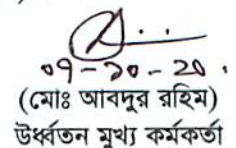 ০৭-১০-২০.
(মোঃ আবদুর রহিম)
উর্ধ্বতন মুখ্য কর্মকর্তা